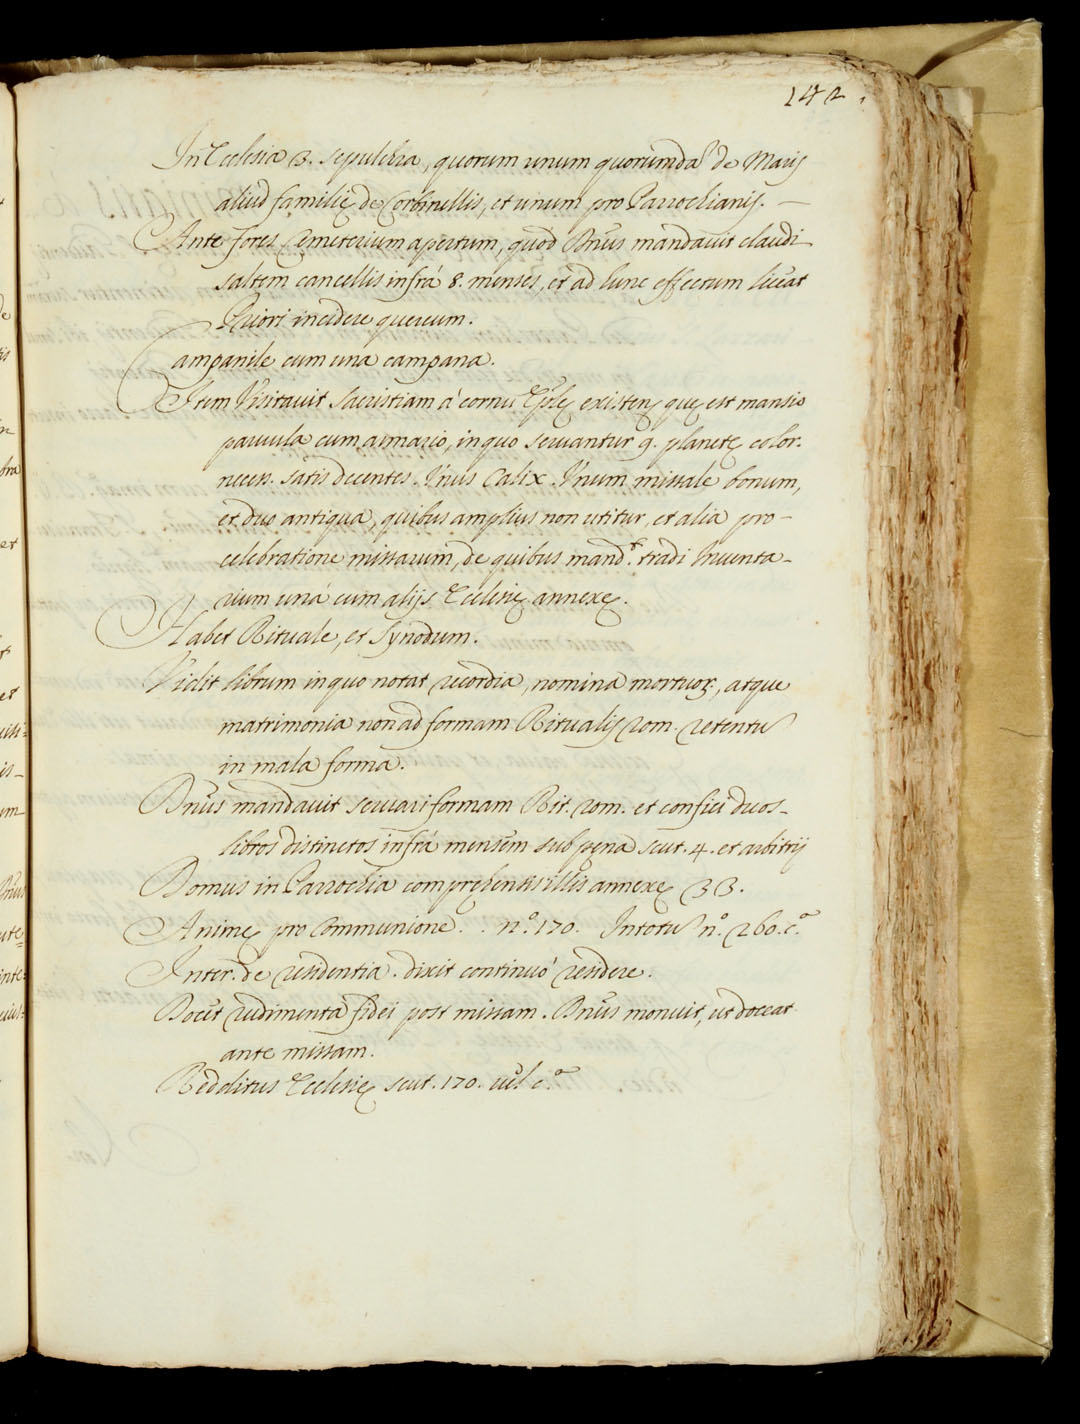 142
In Ecclesia 3. sepulchra, quorum unum quorumda de Marij
aliud familię de Corbinellis, et unum pro Parrochianis. —
Ante fores Cęmeterium apertum, quod Dnūs mandauit claudi
saltem cancellis infrà 8. menses, et ad hunc effectum liceat
Priori incidere quercum.
Campanile cum una campana.
Item Visitauit Sacristiam à cornu Eplę existen, quę est mansio
paruula cum armario, in quo seruantur 9. planetę color.
necess. satis decentes. Vnus Calix. Vnum missale bonum,
et duo antiqua, quibus amplius non utitur, et alia pro-
celebratione missarum, de quibus mand.t tradi Inuenta-
rium unà cum alijs Ecclesię annexę.
Habet Rituale, et Synodum.
Vidit librum in quo notat recordia, nomina mortuor., atque
matrimonia non ad formam Ritualis rom. retentū
in mala forma.
Dnūs mandauit seruari formam Rit. rom. et confici duos-
libros distinctos infrà mensem sub pena scut. 4. et arbitrij
Domus in Parrochia comprehensis illis annexę 33.
Animę pro Communione. . n.º 170. In totū n.º 260. c.ª
Inter. de residentia. dixit continuò residere.
Docet rudimenta fidei post missam. Dnūs monuit, ut doceat
ante missam.
Redditus Ecclesię scut. 170. uel c.ª